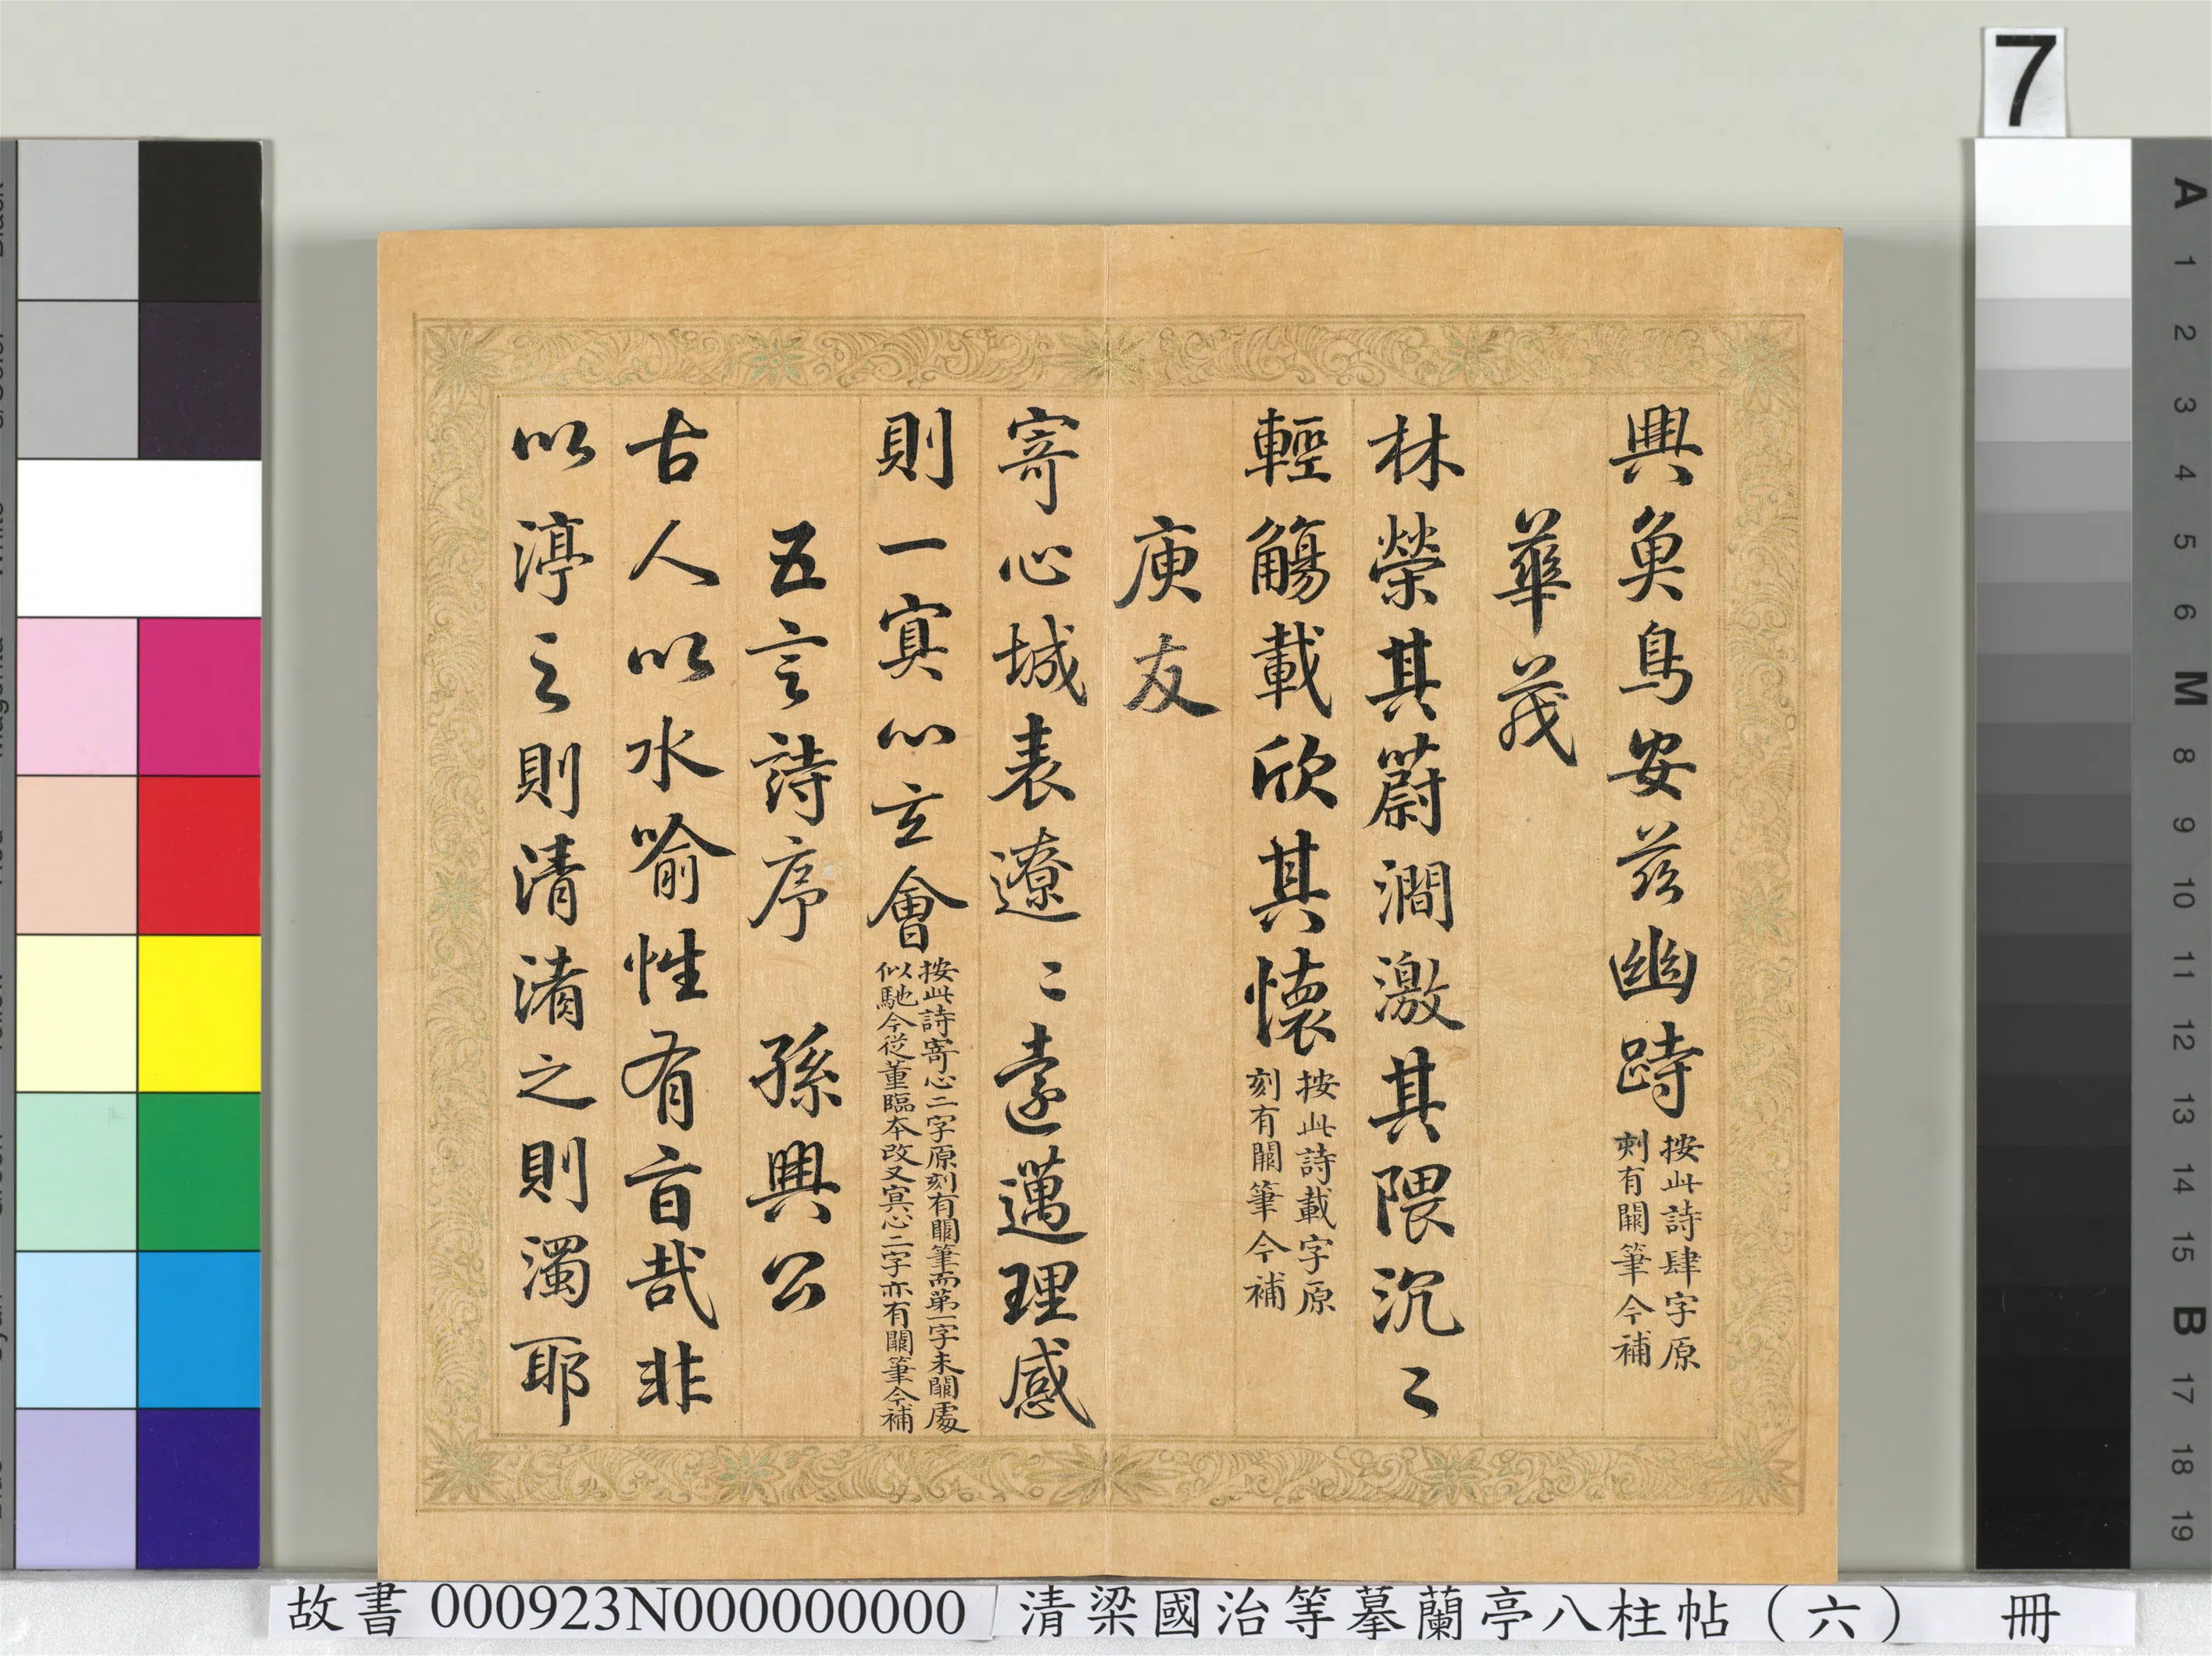 興魚鳥安茲幽跱按此詩肆字原
刻有闕筆今補
華茂
林榮其蔚澗激其隈沉〻
輕觴載欣其懷按此詩載字原
刻有闕筆今補
庾友
寄心城表遼〻遠邁理感
則一寘心玄會按此詩寄心二字原刻有闕筆而第一字未闕處
似馳今從董臨本改又寘心二字亦有闕筆今補
五言詩序 孫興公
古人以水喻性有旨哉非
以渟之則清淆之則濁耶
7
A
1
2
3
4
5
6
M
8
9
10
11
12
13
14
15
B
17
18
19
故書 000923N000000000 清梁國治等摹蘭亭八柱帖（六） 冊